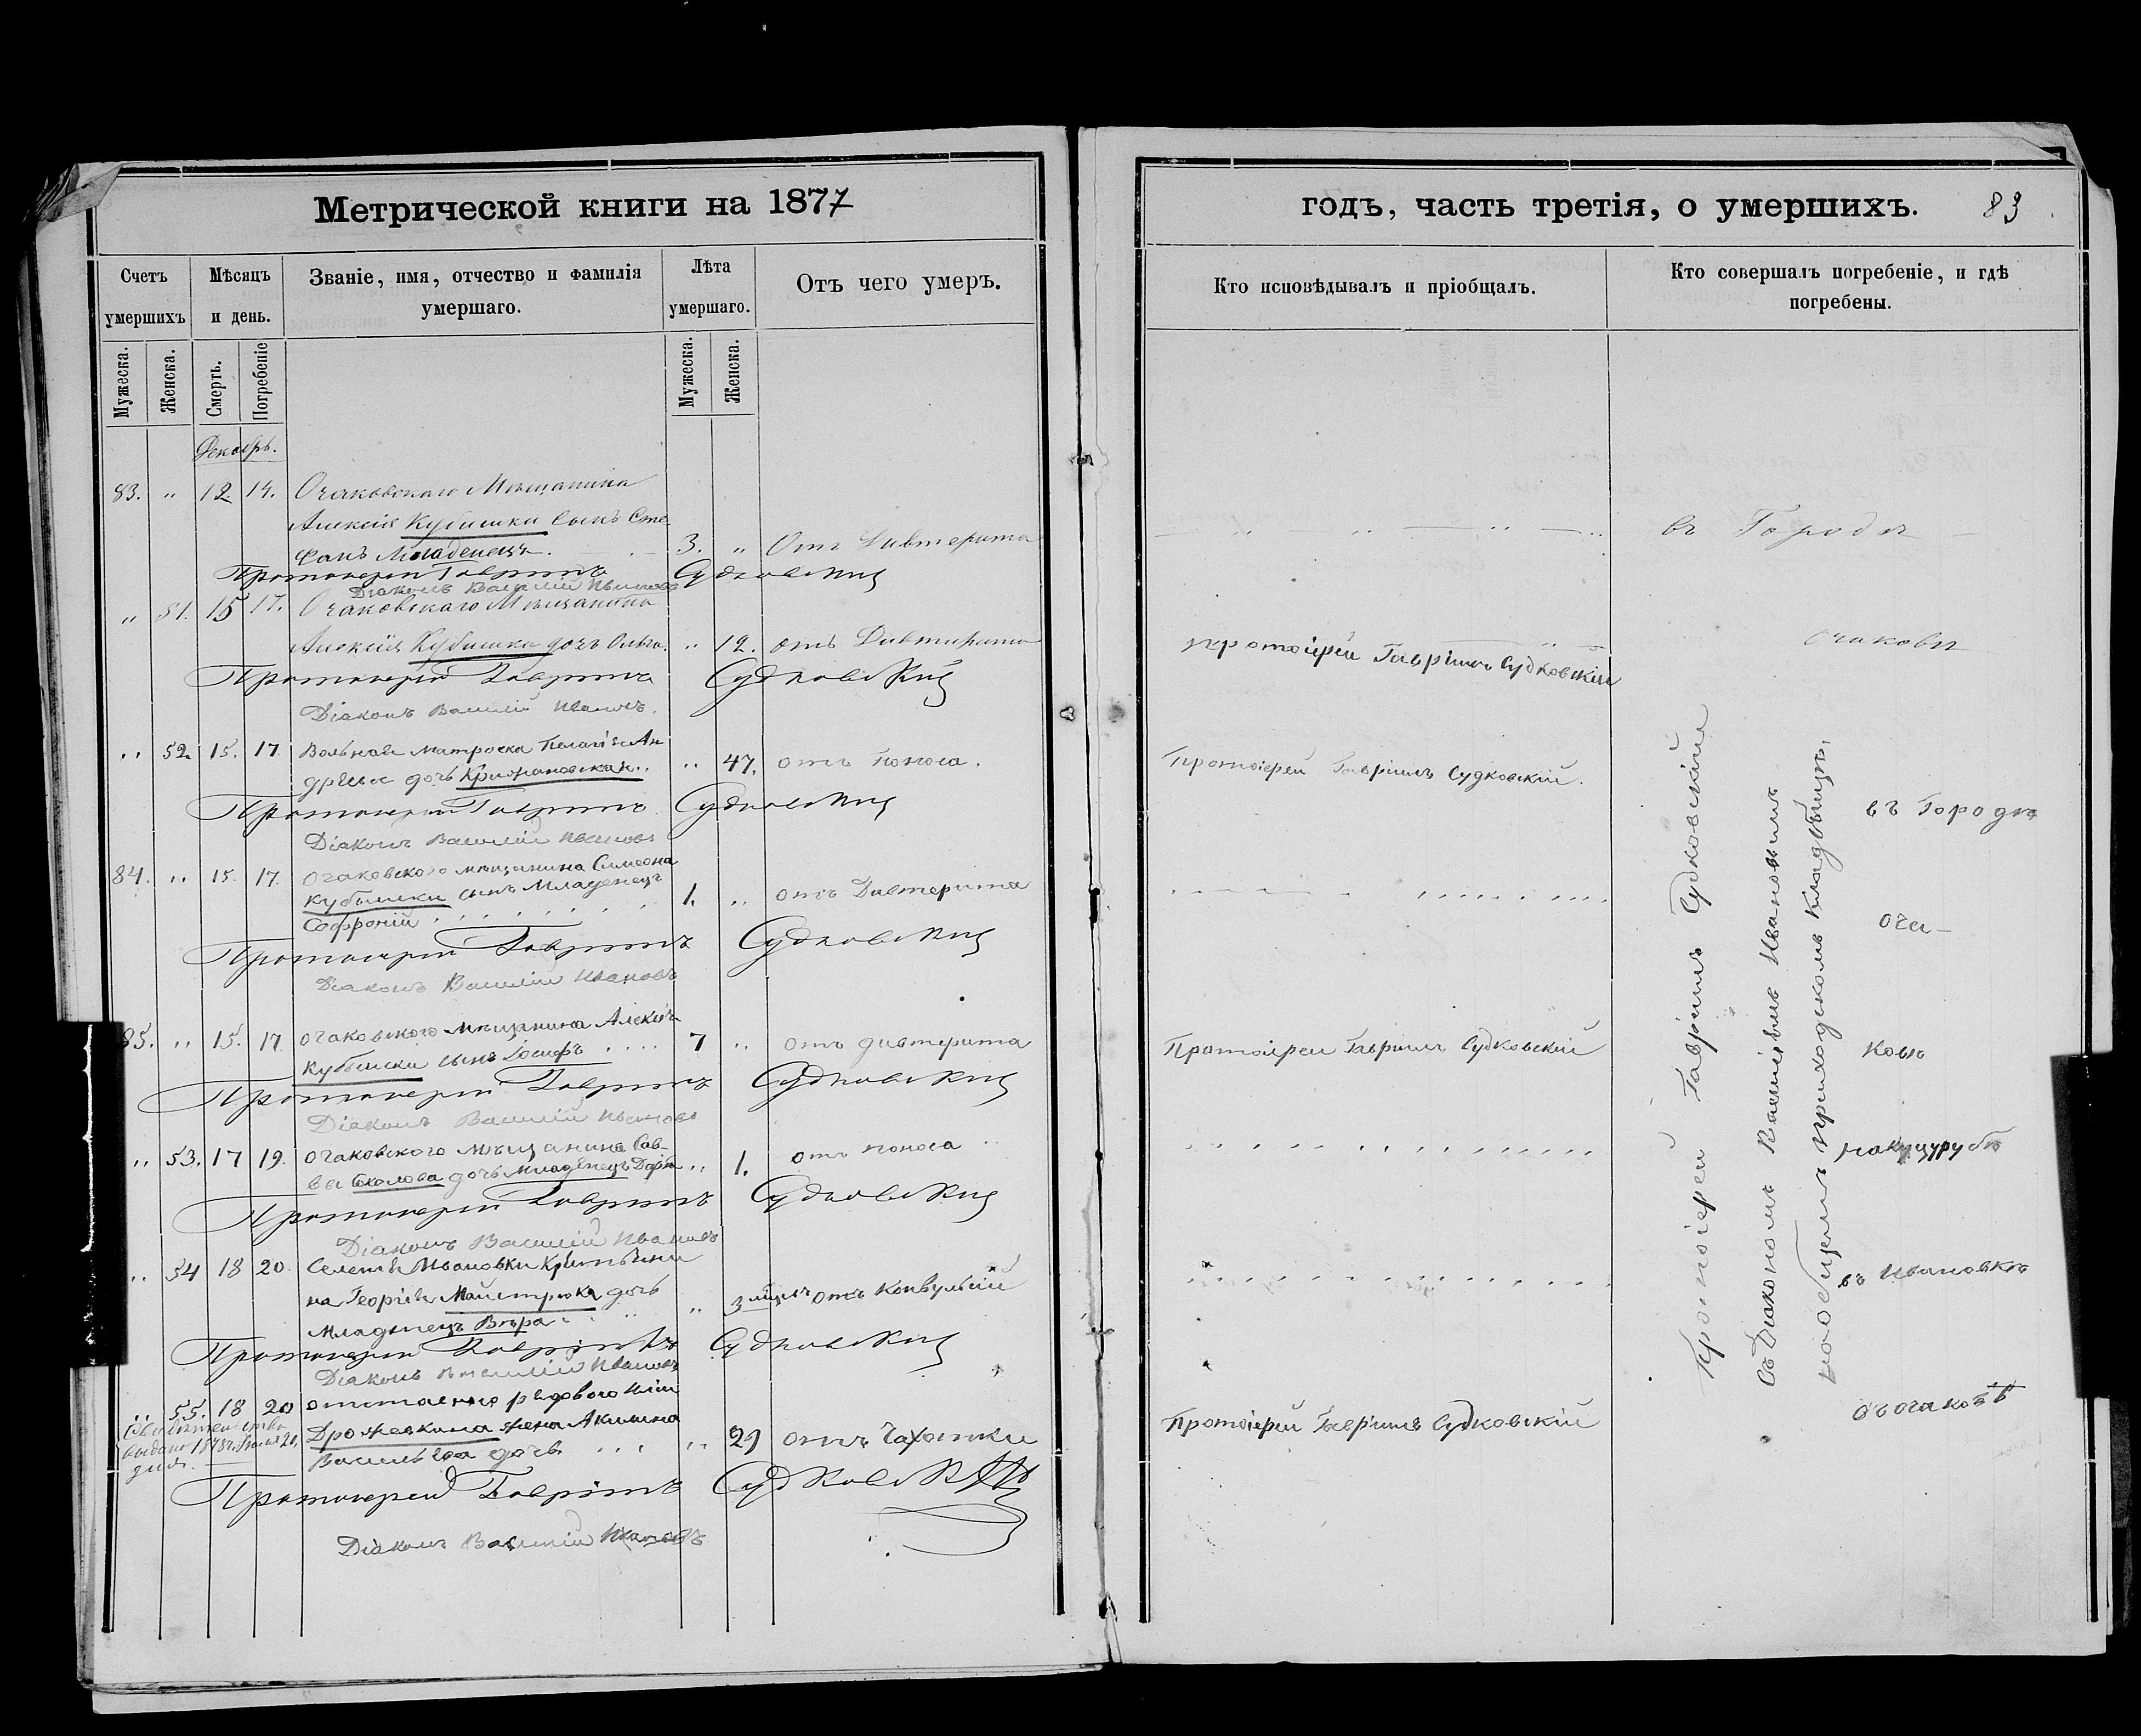 Метрической книги на 1877
годъ, часть третія, о умершихъ. 83
Счетъ умершихъ
Мѣсяцъ и день.
Званіе, имя, отчество и фамилія умершаго.
Лѣта умершаго.
Отъ чего умеръ.
Кто исповѣдывалъ и пріобщалъ.
Кто совершалъ погребеніе, и гдѣ погребены.
Мужеска.
Женска.
Смерть.
Погребеніе
Мужеска.
Женска.
Декабрь.
83. " 12. 14. Очаковскаго Мѣщанина
Алексія Кубышки сынъ Сте
фанъ Младенецъ. 3. " Отъ Дивтерита
въ Городѣ
Протоіерей Гавріилъ Судковскій
Діаконъ Василій Ивановъ
" 51. 15 17. Очаковскаго Мѣщанина
Алексія Кубышка дочь Ольга. " 12. отъ Дивтерита
протоіерей Гавріилъ Судковскій
Очаковѣ
Протоіерей Гавріилъ Судковскій
Діаконъ Василій Ивановъ.
" 52. 15. 17 Вольная матроска Пелагія Ан
дрѣева дочь Крижановская. " 47. отъ поноса.
Протоіерей Гавріилъ Судковскій.
въ Городѣ
Протоіерей Гавріилъ Судковскій
Діаконъ Василій Ивановъ
84. " 15. 17. Очаковского мѣщанина Симеона
Кубышки сынъ Младенецъ 1. " отъ Дивтерита
Софроній
Оча-
Протоіерей Гавріилъ Судковскій
Діаконъ Василій Ивановъ
85. " 15. 17. Очаковского Мѣщанина Алексія
Кубышки сынъ Іосифъ 7 " отъ дивтерита
Протоіерей Гавріилъ Судковскій
ковѣ
Протоіерей Гавріилъ Судковскій
Діаконъ Василій Ивановъ
" 53. 17 19. Очаковского мѣщанина Сав-
вы Соколова дочь Младенецъ Дарія " 1. отъ поноса
Протоіерей Гавріилъ Судковскій
Діаконъ Василій Ивановъ
" 54 18 20. Селенія Ивановки Крестьяни
на Георгія Майстрюка дочь
Младенецъ Вѣра " 3 мѣсяц. отъ Конвульсій
въ Ивановкѣ
Протоіерей Гавріилъ Судковскій
Діаконъ Василій Ивановъ
" 55. 18 20 отставного рядового
Дрожевкина жена Акилина
Васильева дочь " 29 отъ Чахотки
Протоіерей Гавріилъ Судковскій
Свидѣтельство
выдано 1878 г. 20,
дня.
Протоіерей Гавріилъ Судковскій
Діаконъ Василій Ивановъ
Протоіерей Гавріилъ Судковскій
Съ Діакономъ Василіемъ Ивановымъ
приходскомъ кладбищѣ,